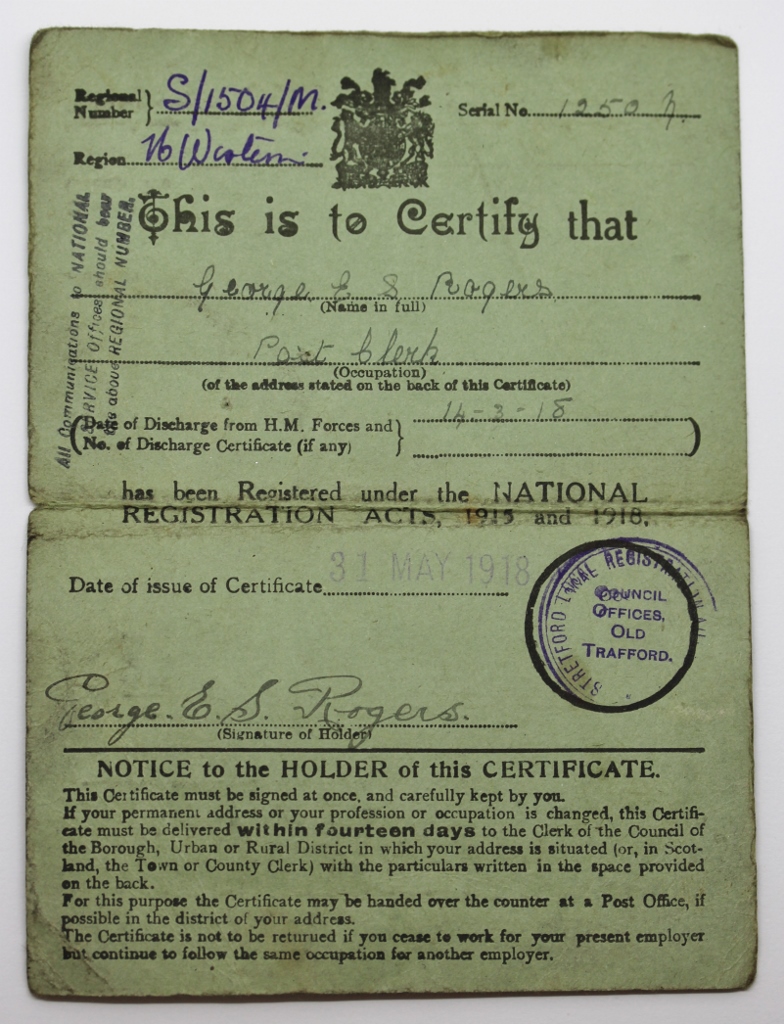 Regional Number } S/1504/M.
Serial No. 1250
Region N Western
All Communications to NATIONAL
SERVICE Offices should bear
the above REGIONAL NUMBER.
This is to Certify that
George E S Rogers
(Name in full)
Post Clerk
(Occupation)
(of the address stated on the back of this Certificate)
14-3-18
(Date of Discharge from H.M. Forces and
No. of Discharge Certificate (if any) } )
has been Registered under the NATIONAL
REGISTRATION ACTS, 1915 and 1918.
Date of issue of Certificate 31 MAY 1918
STRETFORD LOCAL REGISTRATION
COUNCIL
OFFICES,
OLD
TRAFFORD.
George. E. S. Rogers.
(Signature of Holder)
NOTICE to the HOLDER of this CERTIFICATE.
This Certificate must be signed at once, and carefully kept by you.
If your permanent address or your profession or occupation is changed, this Certifi-
cate must be delivered within fourteen days to the Clerk of the Council of
the Borough, Urban or Rural District in which your address is situated (or, in Scot-
land, the Town or County Clerk) with the particulars written in the space provided
on the back.
For this purpose the Certificate may be handed over the counter at a Post Office, if
possible in the district of your address.
The Certificate is not to be returued if you cease to work for your present employer
but continue to follow the same occupation for another employer.